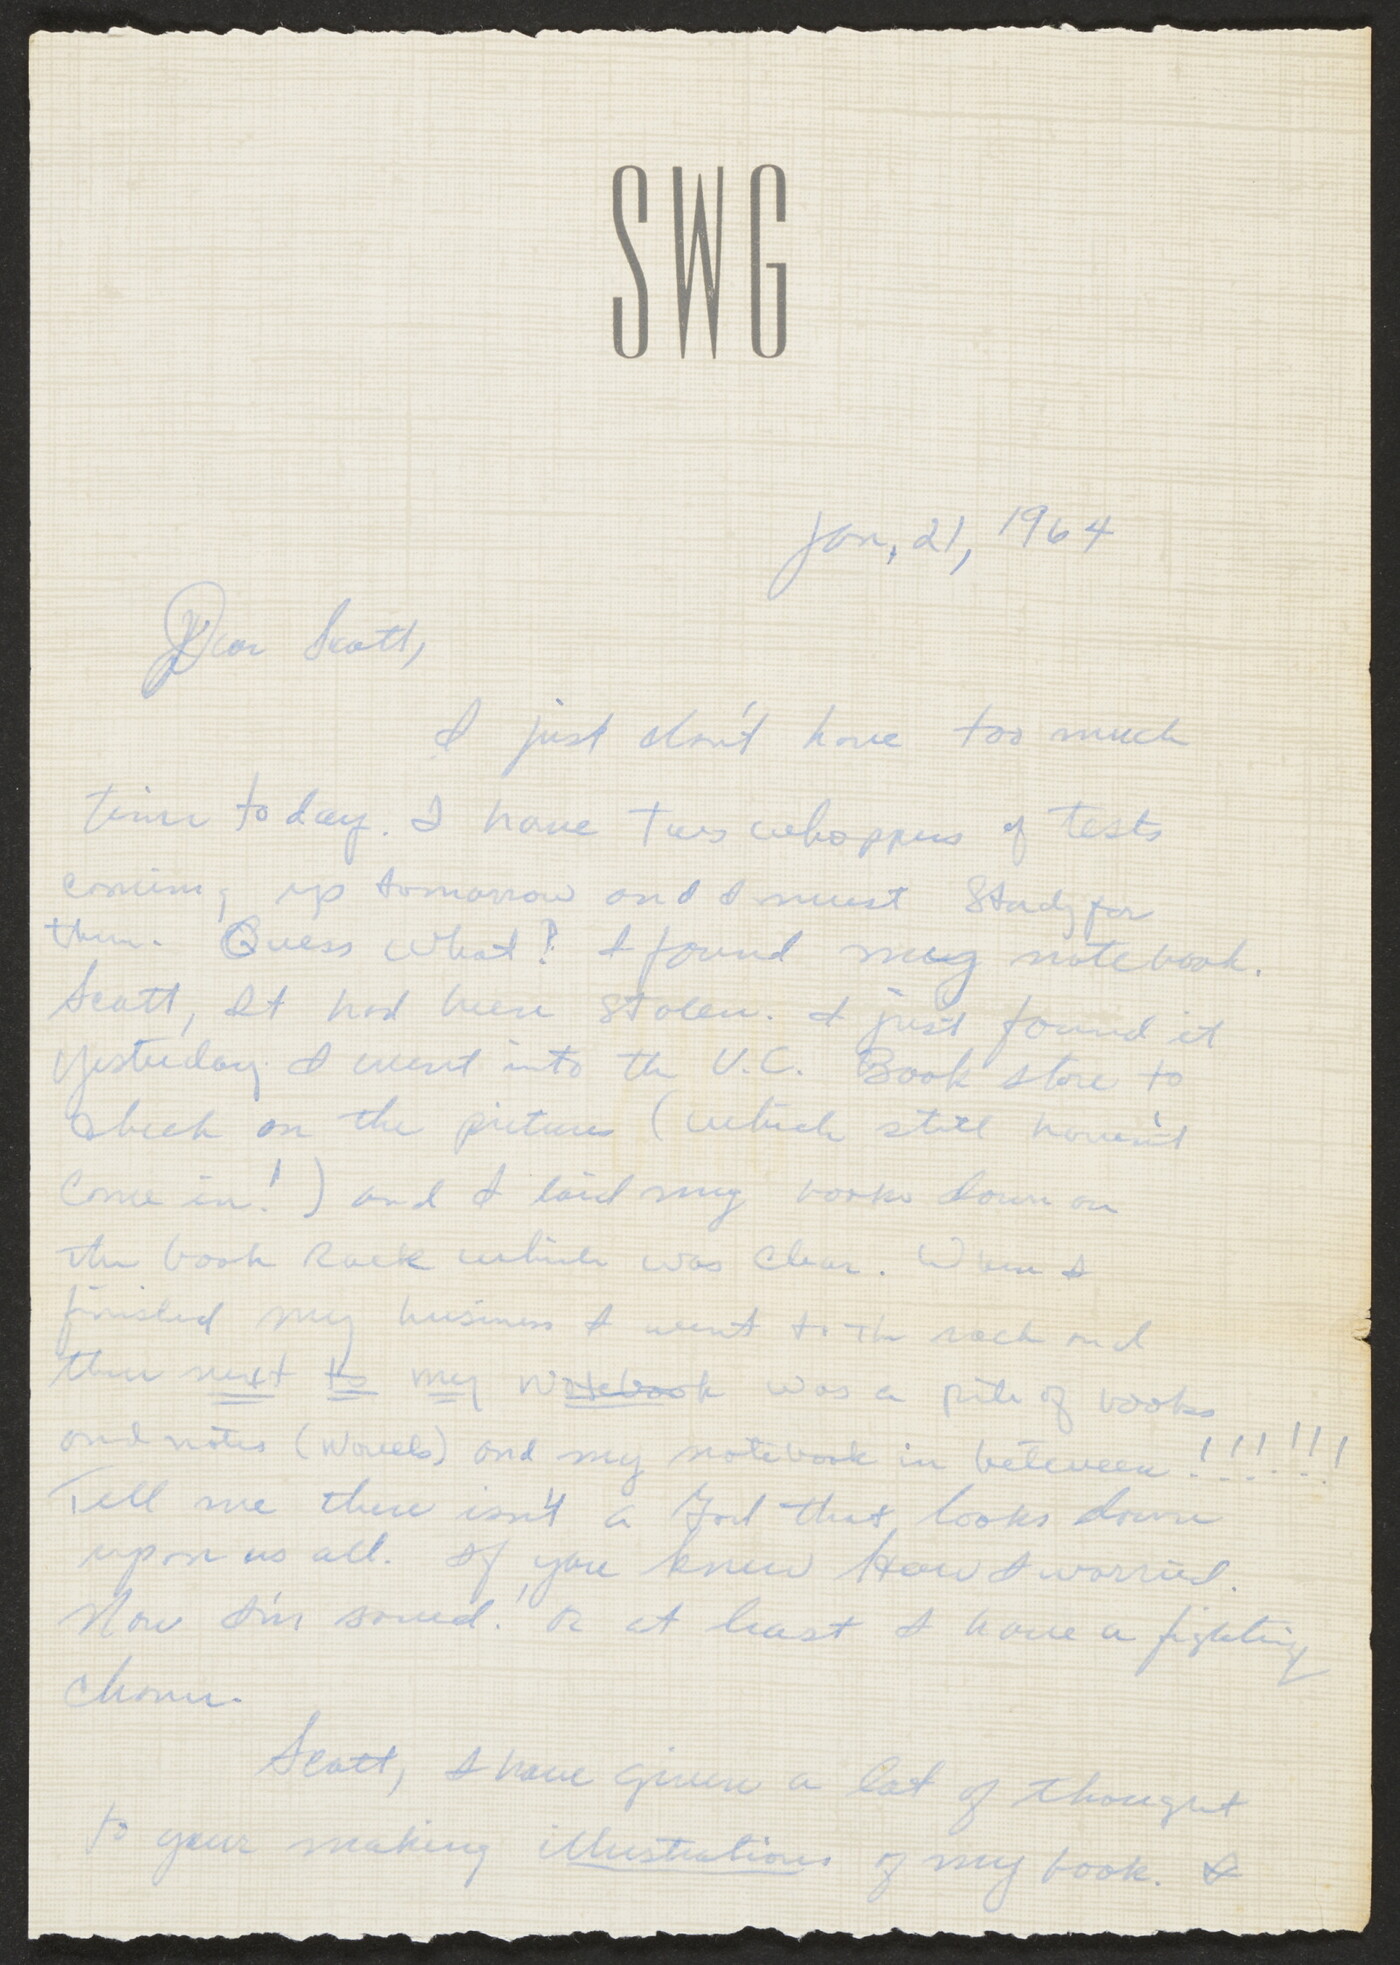 SWG
Jan, 21, 1964
Dear Scott,
I just don't have too much
time today. I have two whoppers of tests
coming up tomorrow and I must study for
them. Guess what? I found my notebook.
Scott, It had been stolen. I just found it
yesterday. I went into the U.C. Book store to
check on the pictures (which still haven't
come in!) and I laid my books down on
the book rack which was clear. When I
finished my business I went to the rack and
there next to my notebook was a pile of books
and notes (Novels) and my notebook in between!!!!!!
Tell me there isn't a God that looks down
upon us all. If you knew How I worried.
Now I'm saved! Or at least I have a fighting
chance.
Scott, I have given a lot of thought
to your making illustrations of my book. I